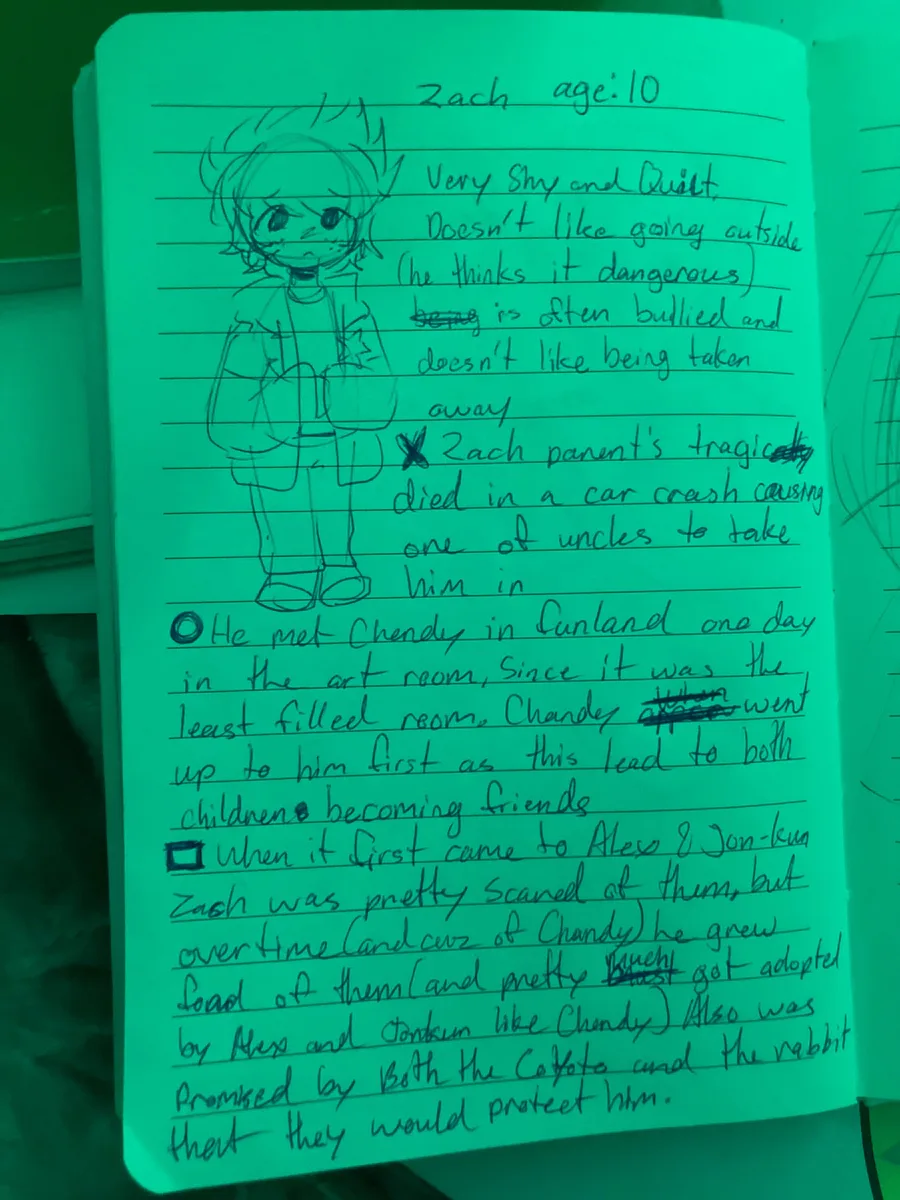 Zach age:10
Very Shy and Quiet.
Doesn't like going outside
(he thinks it dangerous)
being is often bullied and
doesn't like being taken
away
X Zach parent's tragic
died in a car crash causing
one of uncles to take
him in
He met Chendy in funland one day
in the art room, Since it was the
least filled room. Chandy went
up to him first as this lead to both
children becoming friends
When it first came to Alex & Jon-kun
Zach was pretty scared of them, but
overtime (and cuz of Chandy) he grew
foad of them (and pretty much got adopted
by Alex and Jonkun like Chendy) Also was
Promised by Both the CoYoto and the rabbit
that they would protect him.